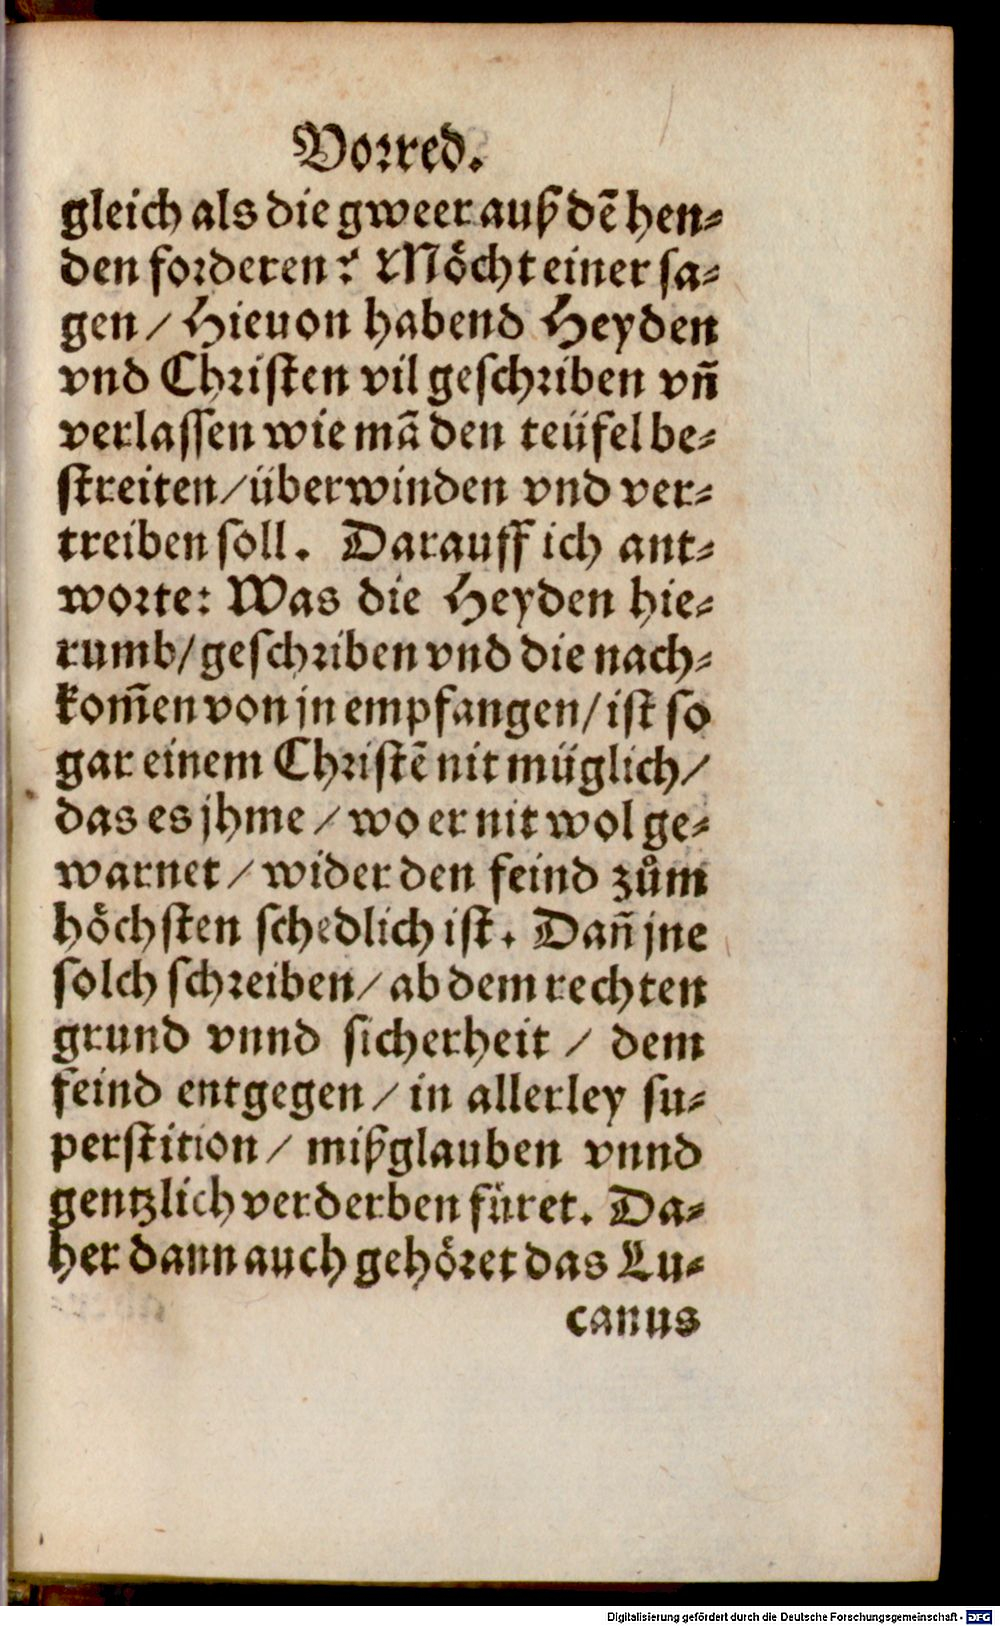 Vorred.
gleich als die gweer auß dē hen-
den forderen? Möcht einer sa-
gen / Hieuon habend Heyden
vnd Christen vil geschriben vn̄
verlassen wie mā den teüfel be-
streiten / überwinden vnd ver-
treiben soll. Darauff ich ant-
worte: Was die Heyden hie-
rumb / geschriben vnd die nach-
kom̄en von jn empfangen / ist so
gar einem Christē nit müglich /
das es jhme / wo er nit wol ge-
warnet / wider den feind zům
höchsten schedlich ist. Dan̄ jne
solch schreiben / ab dem rechten
grund vnnd sicherheit / dem
feind entgegen / in allerley su-
perstition / mißglauben vnnd
gentzlich verderben füret. Da-
her dann auch gehöret das Lu-
canus
Digitalisierung gefördert durch die Deutsche Forschungsgemeinschaft - DFG